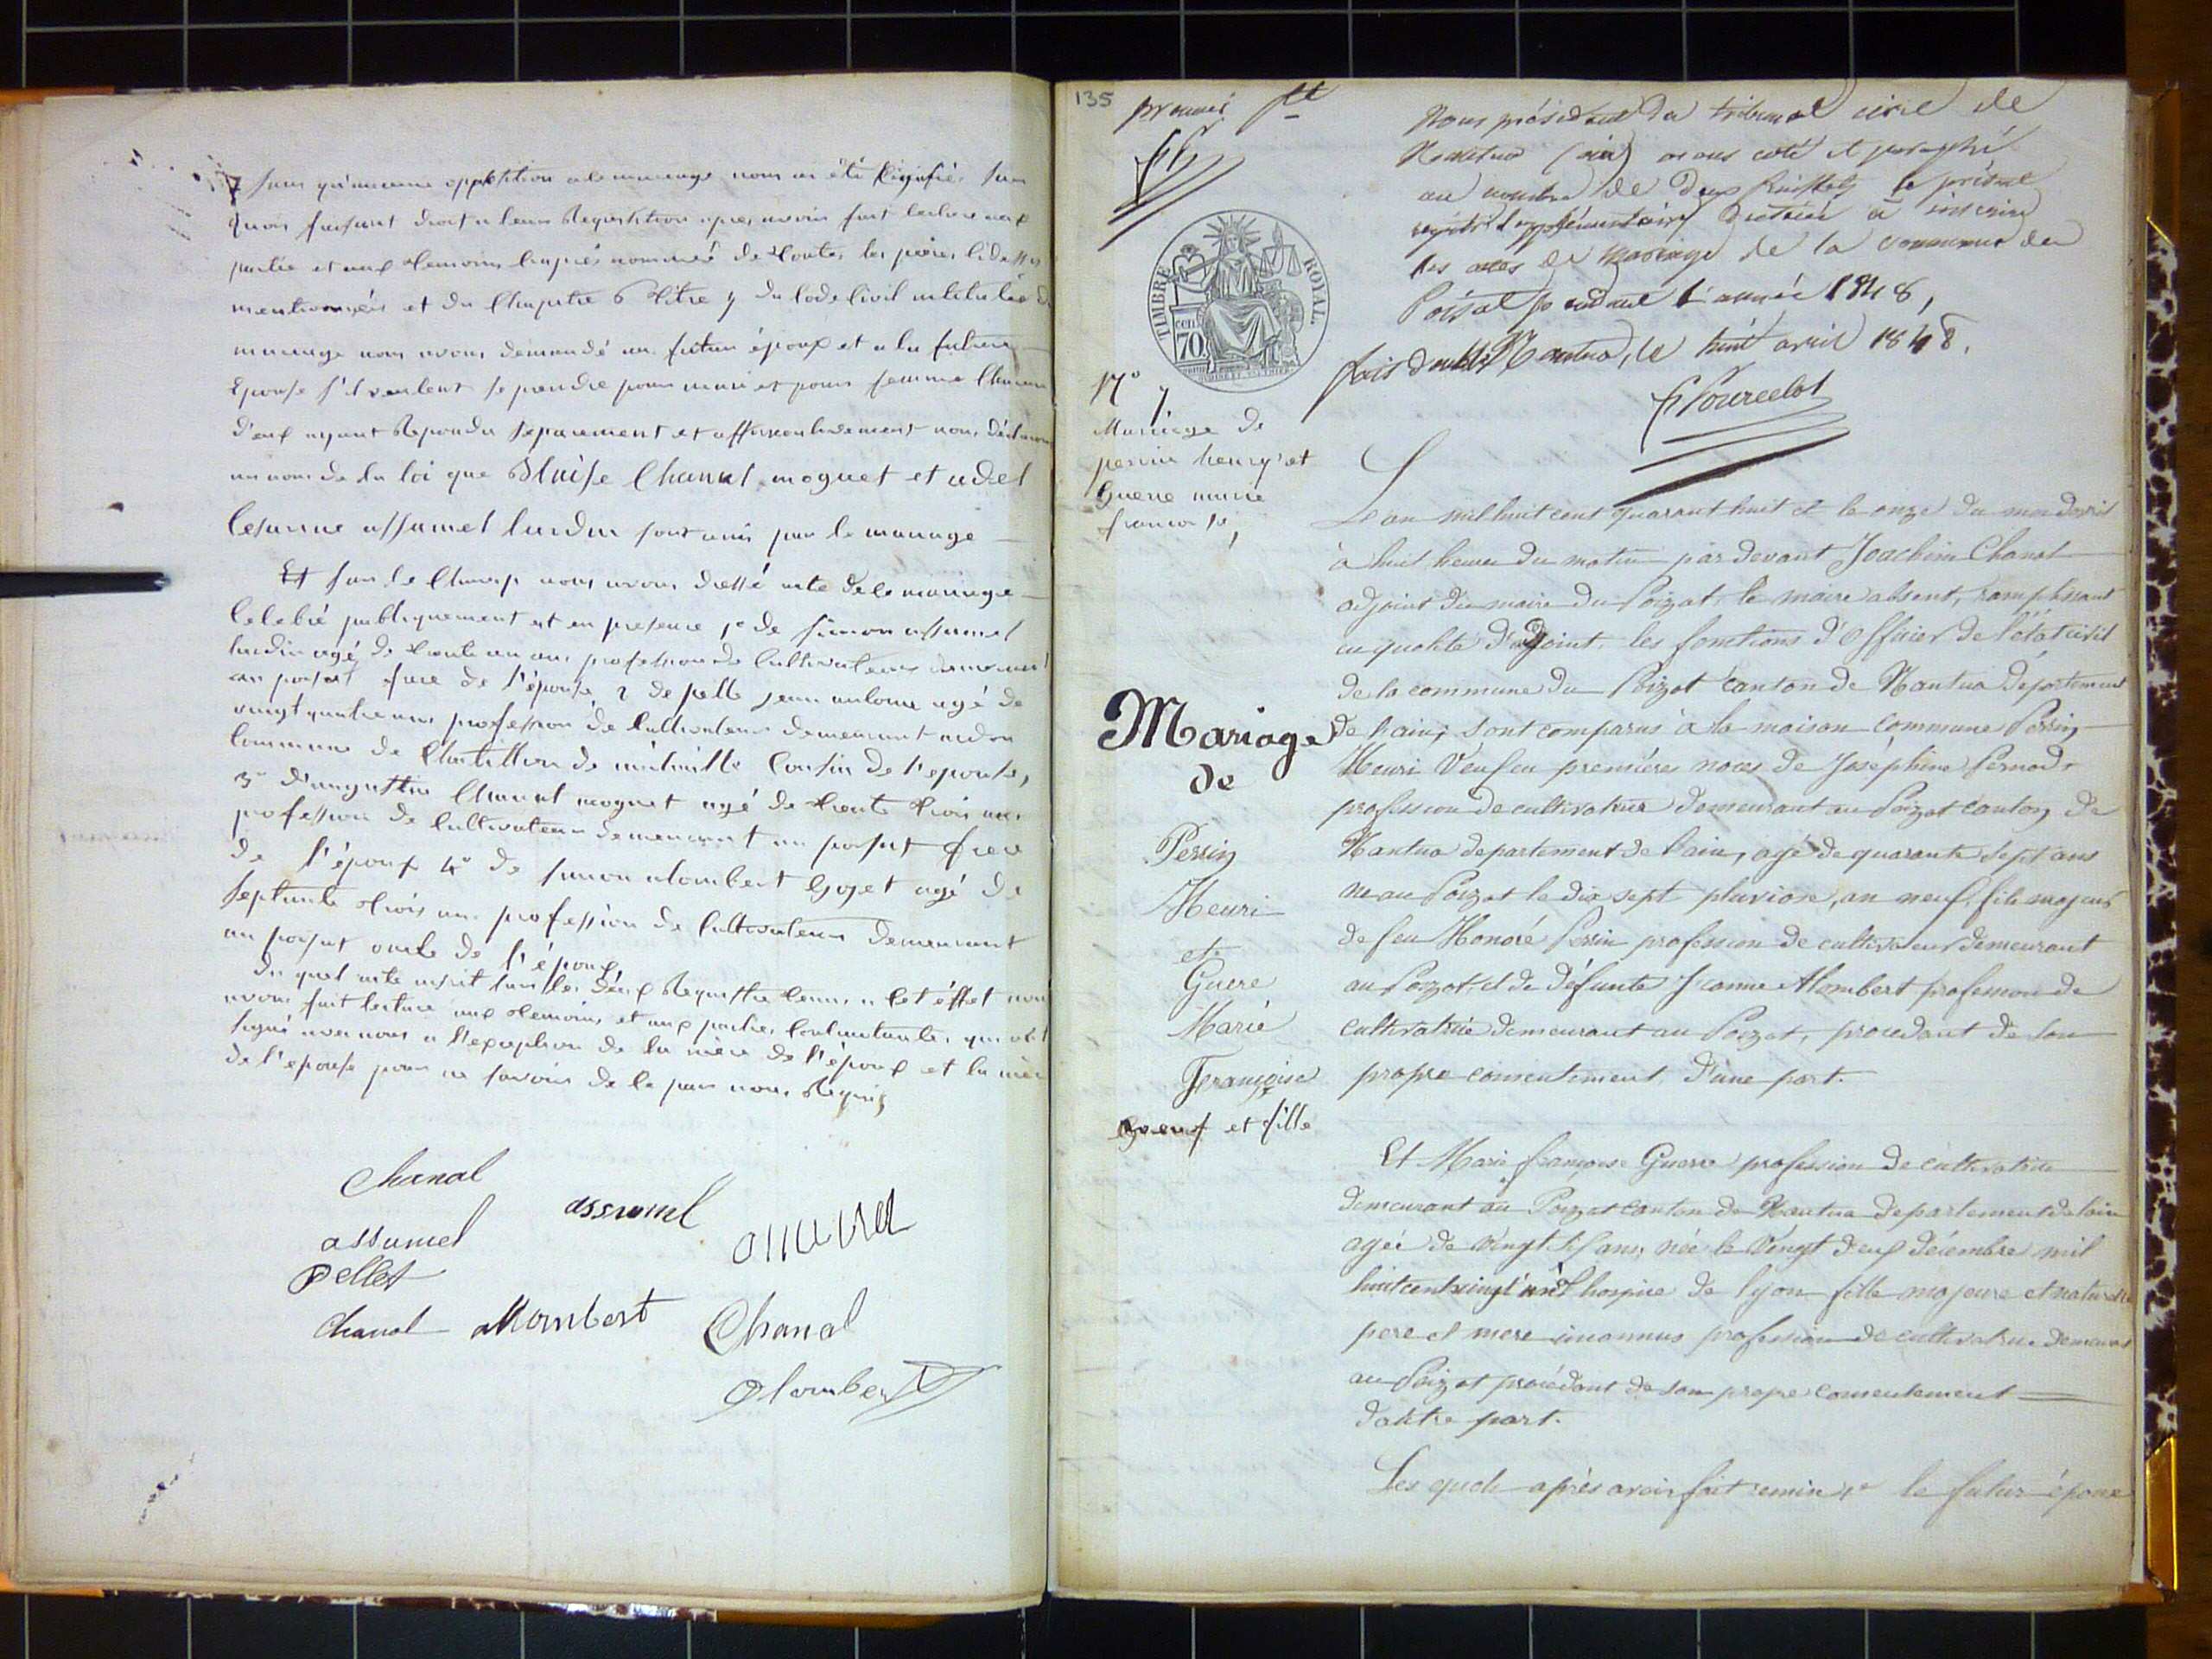 sans qu'aucune opposition a le mariage nous ai été signifié sur
quoi faisant droit a leur Requisition apres avoir fait lecture aux
partie et aux temoins ciaprés nommé de toutes les pieces cidessus
mentionnées et du Chapitre 6 titre 5 du Code Civil intitulé du
mariage nous avons demandé au futur époux et a la future
Epouse s'il veulent se prendre pour mari et pour femme Chacun
d'eux ayant Repondu séparement et affirmativement nous déclarons
au nom de la loi que Blaise Chanal moguet et
assumel lurdin sont unis par le mariage
Et sur le Champ nous avons dressé acte de ce mariage
Celebré publiquement et en presence 1e de simon assumel
lurdin agé de trente un ans profession de Cultivateur demeurant
au poisat frere de l'épouse 2 de pelle jean antoine agé de
vingt quatre ans profession de Cultivateur demeurant
Commune de Chatillon de michaille Cousin de l'epouse,
3e d'augustin Chanal moguet agé de trente trois ans
profession de Cultivateur demeurant au poisat frere
de l'époux 4e de simon alombert goget agé de
septante trois ans profession de Cultivateur demeurant
au poisat oncle de l'époux
du quel acte inscrit sur les deux Registre tenu a cet éffet nous
avons fait lecture aux temoins et aux partie Contractante, qui ont
signé avec nous a l'exeption de la mère de l'époux et la mère
de l'epouse pour ne savoir de ce par nous Requis
Chanal
assumel
assumel
pellet
Chanal
alombert
Chanal
alombert
135
premier ft
Nous président du tribunal civil de
Nantua (ain) avons coté et paraphé
au nombre de deux feuillets le présent
registre supplémentaire destiné à inscrire
les actes de mariage de la commune du
Poisat pendant l'année 1848,
fait double Nantua, le huit avril 1848.
Pourcelot
TIMBRE ROYAL.
70 cen.
N° 7
Mariage de
perrin henry et
Guerre marie
francoise,
L'an mil huit cent quarant huit et le onze du mois d'avril
à huit heures du matin par devant Joachim Chanal
adjoint du maire du Poizat le maire absent, ramplissant
en qualité d'adjoint, les fonctions d'officier de l'état civil
de la commune du Poizat canton de Nantua département
de l'ain, sont comparus à la maison commune Perrin
Henri Veuf en premières noces de Joséphine Pernod
profession de cultivateur demeurant au Poizat canton de
Nantua departement de l'ain, agé de quarante sept ans
né au Poizat le dix sept pluviose, an neuf, fils majeur
de feu Honoré Perrin profession de cultivateur demeurant
au Poizat, et de défunte Jeanne Alombert profession de
cultivatrice demeurant au Poizat, procedant de son
propre consentement, d'une part.
Mariage
de
Perrin
Henri
et
Guere
Marie
Françoise
veuf et fille
Et Marie françoise Guerre profession de cultivatrice
demeurant au Poizat canton de Nantua departement de l'ain
agée de vingt six ans, née le vingt deux décembre mil
huit cent vingt un hospice de lyon fille majeure et naturelle
pere et mere inconnus profession de cultivatrice demeurant
au Poizat procédant de son propre consentement
d'autre part.
Les quels après avoir fait remise 1° le futur époux